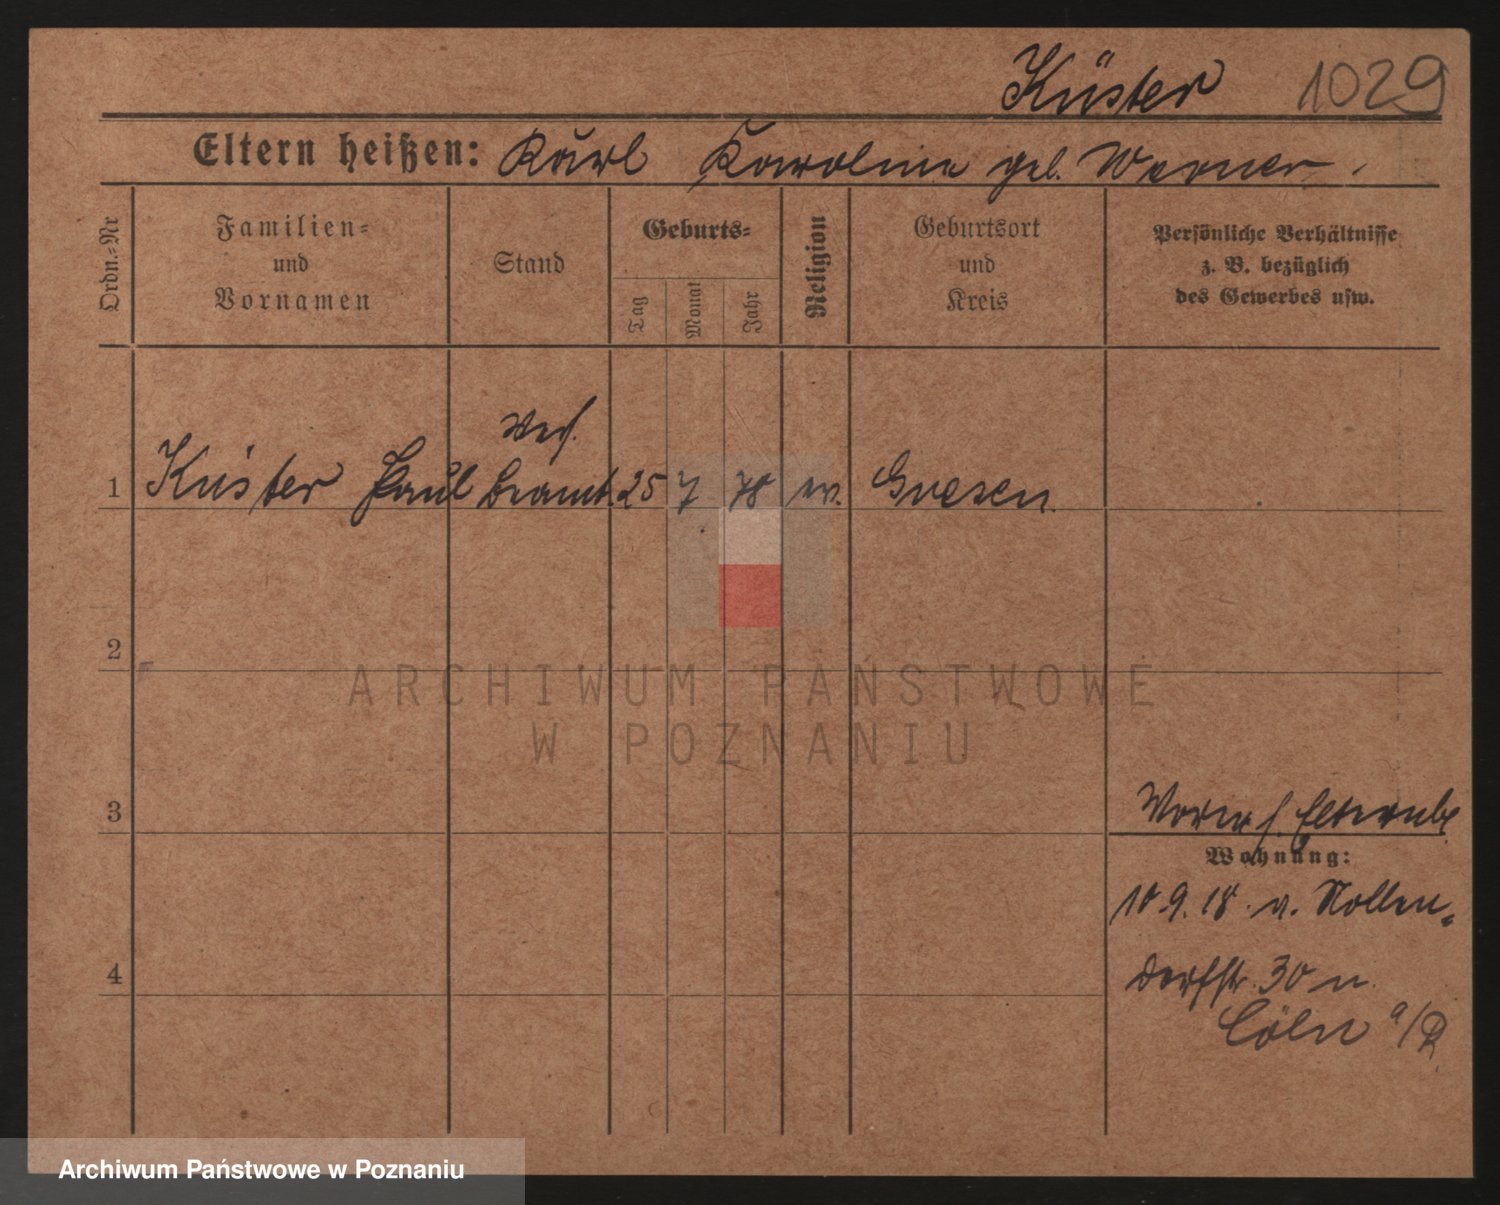 Küster 1029
Eltern heißen: Karl Karoline geb. Werner.
Ordn.=Nr
Familien=
und
Vornamen
Stand
Geburts=
Tag
Monat
Jahr
Religion
Geburtsort
und
Kreis
Persönliche Verhältnisse
z. B. bezüglich
des Gewerbes usw.
1 Küster Paul beamt. 25 7 78 ev. Gnesen.
2
3
4
Wohnung:
10.9.18. v. Nollen=
dorfstr. 30 n.
Cöln a/R
ARCHIWUM PAŃSTWOWE
W POZNANIU
Archiwum Państwowe w Poznaniu